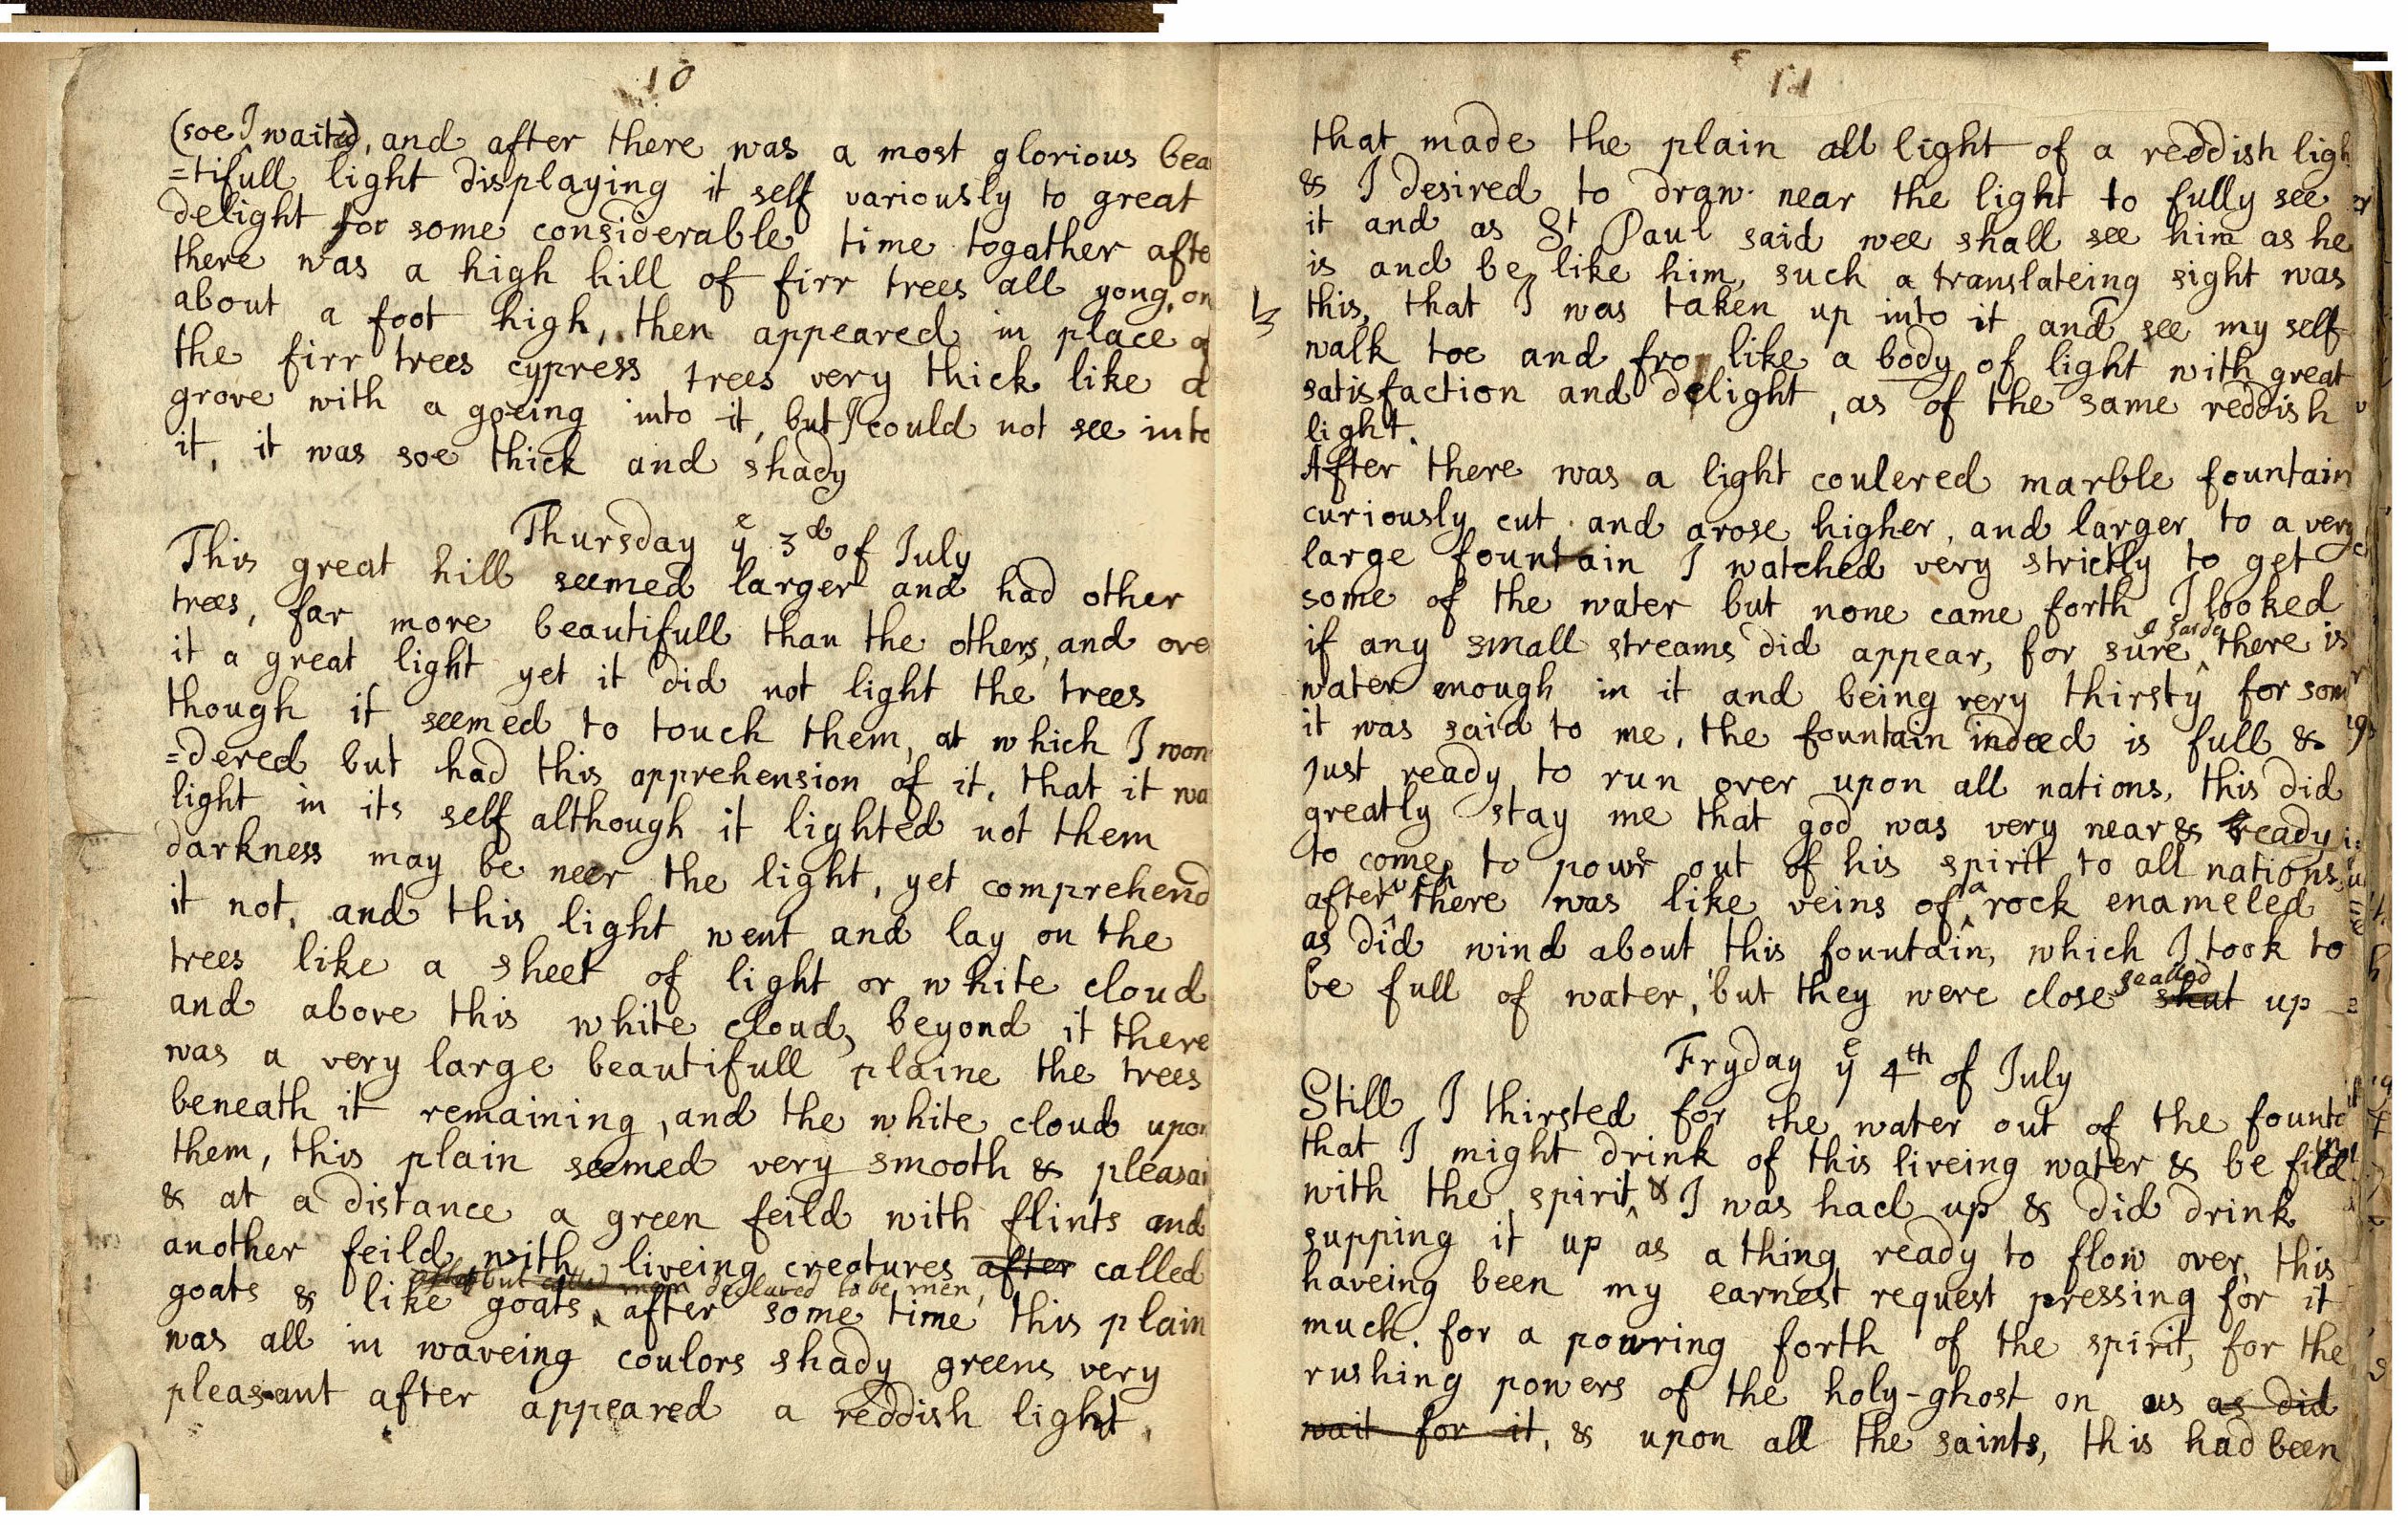 10
(soe I waited), and after there was a most glorious bea
=tifull light displaying it self variously to great
delight for some considerable time togather afte
there was a high hill of firr trees all yong, on
about a foot high, then appeared in place of
the firr trees cypress trees very thick like a
grove with a goeing into it, but I could not see into
it, it was soe thick and shady
Thursday ye 3d of July
This great hill seemed larger and had other
trees, far more beautifull than the others, and ove
it a great light yet it did not light the trees
though it seemed to touch them, at which I won
=dered but had this apprehension of it, that it wa
light in its self although it lighted not them
darkness may be neer the light, yet comprehend
it not, and this light went and lay on the
trees like a sheet of light or white cloud
and above this white cloud, beyond it there
was a very large beautifull plaine the trees
beneath it remaining, and the white cloud upon
them, this plain seemed very smooth & pleasa
& at a distance a green feild with flints and
another feild with liveing creatures after called
goats & like goats declared to be men, after some time this plain
was all in waveing coulors shady greens very
pleasant after appeared a reddish light,
11
that made the plain all light of a reddish ligh
& I desired to draw near the light to fully see
it and as St Paul said wee shall see him as he
is and be like him, such a translateing sight was
this, that I was taken up into it and see my self
walk toe and fro like a body of light with great
satisfaction and delight, as of the same reddish
light.
After there was a light coulered marble fountain
curiously cut and arose higher, and larger to a very
large fountain I watched very strictly to get
some of the water but none came forth I looked
if any small streams did appear, for sure there is
water enough in it and being very thirsty for som
it was said to me, the fountain indeed is full &
just ready to run over upon all nations, this did
greatly stay me that god was very near & ready
to come, to powr out of his spirit to all nations,
after there was like veins of a rock enameled
as did wind about this fountain, which I took to
be full of water, but they were close shut sealled up
Fryday ye 4th of July
Still I thirsted for the water out of the fountain
that I might drink of this liveing water & be fild
with the spirit, & I was had up & did drink
supping it up as a thing ready to flow over, this
haveing been my earnest request pressing for it
much, for a powring forth of the spirit, for the
rushing powers of the holy-ghost on us as did
wait for it, & upon all the saints, this had been